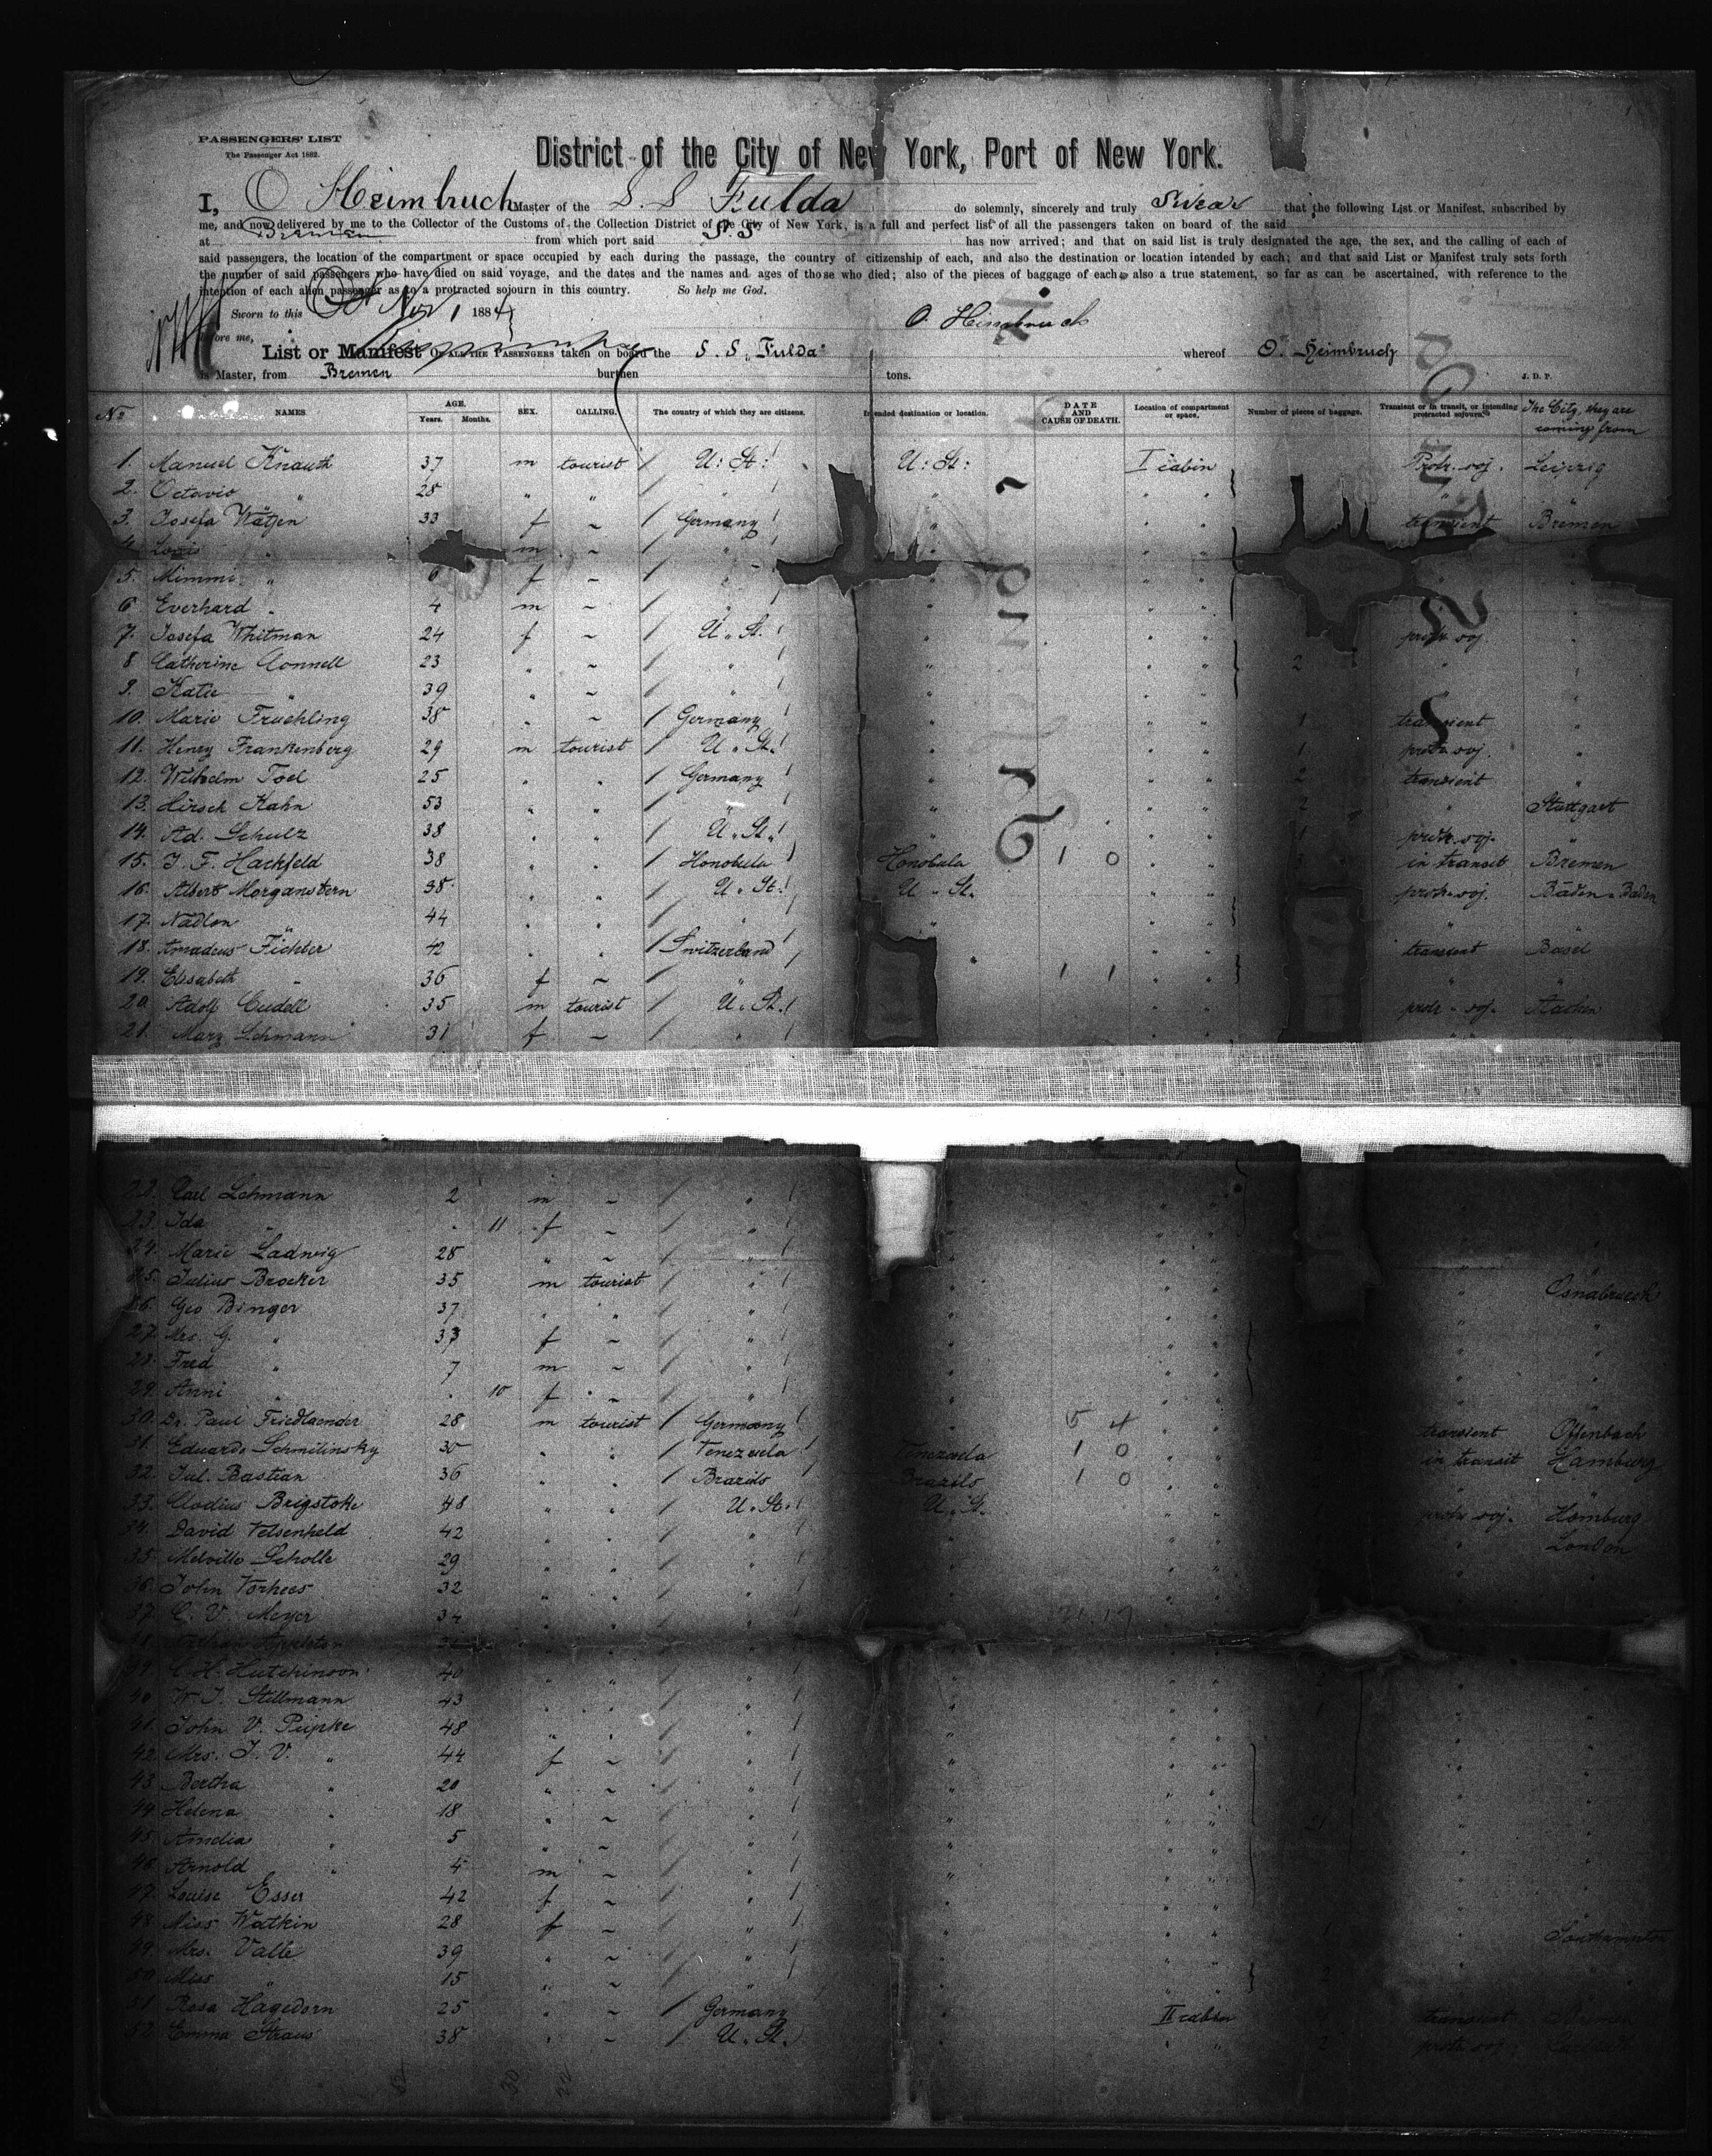 PASSENGERS' LIST
The Passenger Act 1882.
District of the City of New York, Port of New York.
I, O Heimbruch Master of the S. S Fulda do solemnly, sincerely and truly Swear that the following List or Manifest, subscribed by
me, and now delivered by me to the Collector of the Customs of the Collection District of the City of New York, is a full and perfect list of all the passengers taken on board of the said S.S
at Bremen from which port said has now arrived; and that on said list is truly designated the age, the sex, and the calling of each of
said passengers, the location of the compartment or space occupied by each during the passage, the country of citizenship of each, and also the destination or location intended by each; and that said List or Manifest truly sets forth
the number of said passengers who have died on said voyage, and the dates and the names and ages of those who died; also of the pieces of baggage of each; also a true statement, so far as can be ascertained, with reference to the
intention of each alien passenger as to a protracted sojourn in this country. So help me God.
Sworn to this Nov 1 1884
before me,
List or Manifest OF ALL THE PASSENGERS taken on board the S. S. "Fulda" whereof O. Heimbruch
is Master, from Bremen burthen tons. J. D. P.
No NAMES AGE. Years. Months. SEX. CALLING. The country of which they are citizens. Intended destination or location. DATE AND CAUSE OF DEATH. Location of compartment or space, Number of pieces of baggage. Transient or in transit, or intending protracted sojourn. The City, they are coming from
1. Manuel Knauth 37 m tourist U: St: U: St: I cabin Protr. soj. Leipzig
2. Octavio " 28 " "
3. Josefa Wätjen 33 f ~ Germany " transient Bremen
4. Louis " m ~ "
5. Mimmi " 6 f ~ "
6 Everhard " 4 m ~ "
7. Josefa Whitman 24 f ~ U. St. " protr. soj.
8 Catherine Connell 23 " ~ " " 2 "
9. Katie " 39 " ~ " "
10. Marie Fruehling 38 " ~ Germany " 1 transient "
11. Henry Frankenberg 29 m tourist U. St. " 1 protr. soj. "
12. Wilhelm Toel 25 " " Germany " 2 transient "
13. Hirsch Kahn 53 " " " " 2 " Stuttgart
14. Ad. Schulz 38 " " U. St. " 1 protr. soj. "
15. J. F. Hackfeld 38 " " Honobulu Honobulu 1 0 3 in transit Bremen
16. Albert Morganstern 38 " " U. St. U. St. protr. soj. Baden-Baden
17. Nadlon " 44 " " " " "
18. Amadeus Fichter 42 " " Switzerland transient Basel
19. Elisabeth " 36 f ~ " 1 1 "
20. Adolf Cudell 35 m tourist U. St. protr. soj. Aachen
21. Mary Lehmann 31 f ~ "
22. Carl Lehmann 2 m ~ "
23. Ida " 11 f ~ "
24. Marie Ladwig 28 " ~ "
25. Julius Brocker 35 m tourist " " Osnabrueck
26. Geo Binger 37 " " " "
27. Mrs. G. " 33 f ~ " "
28. Fred " 7 m ~ " "
29. Anni " 10 f ~ " "
30. Dr. Paul Friedlaender 28 m tourist Germany " 5 4 transient Offenbach
31. Eduardo Schmilinsky 30 " " Venezuela Venezuela 1 0 in transit Hamburg
32. Jul. Bastian 36 " " Brazils Brazils 1 0 " "
33. Clodius Brigstoke 48 " " U. St. U. St. protr. soj. Homburg
34. David Felsenheld 42 " " " " " London
35. Melville Scholle 29 " " " "
36. John Vorhees 32 " " " "
37. C. V. Meyer 34 " " " " 71.17
38. Nathan Appleton
39 C. H. Hutchinson 40 " " " "
40 W. J. Stillmann 43 " " " "
41. John V. Pupke 48 " " " "
42 Mrs. J. V. " 44 f ~ " "
43 Bertha " 20 " ~ " "
44 Helena " 18 " ~ " "
45. Amelia " 5 " ~ " "
46. Arnold " 4 m ~ " "
47. Louise Esser 42 f ~ " "
48. Miss Watkin 28 f ~ " " Southampton
49. Mrs. Valte 39 " ~ " "
50. Miss " 15 " ~ " "
51 Rosa Hagedorn 25 " ~ Germany " II cabin transient Bremen
52 Emma Straus 38 " ~ U. St. " 2 protr. soj.
52 30 22